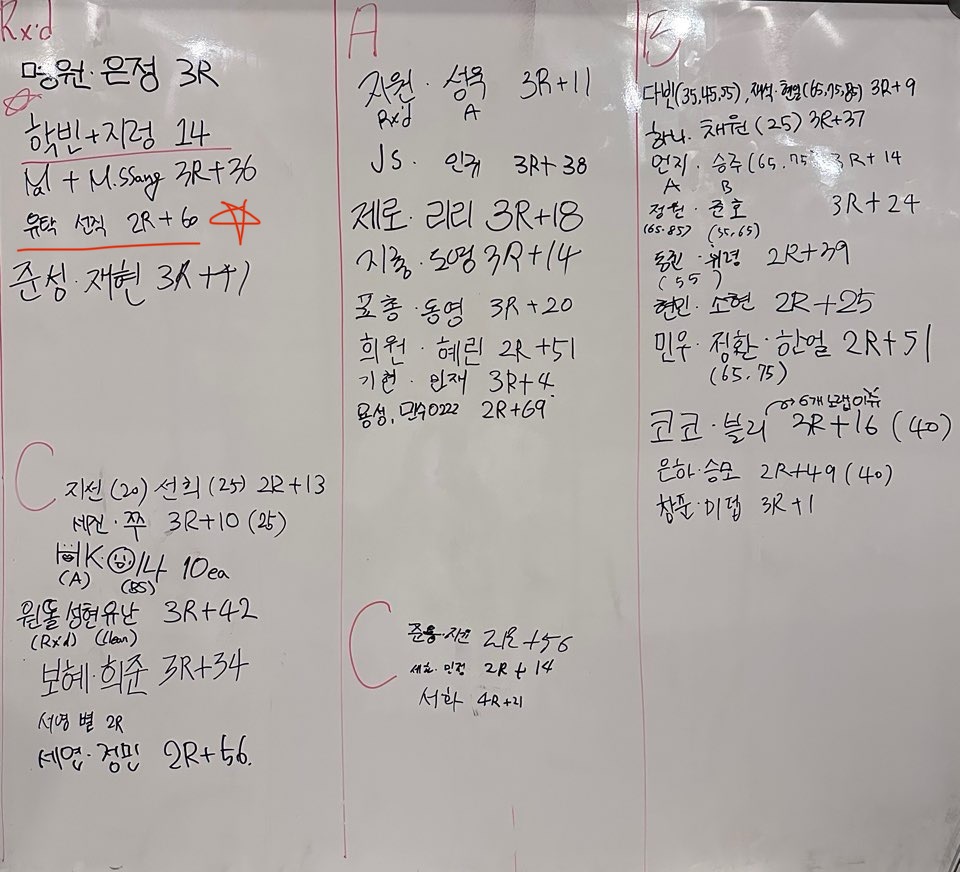 Rx'd
명원·은정 3R
학빈+지렁 14
M + M.SSang 3R+36
유탁 선직 2R+60
준성·재현 3R+41
C
지선 (20) 선희 (25) 2R+13
세진·쭈 3R+10 (25)
HK· 나 10ea
(A) (BS)
원돌 성현유난 3R+42
(Rxd) (Clean)
보혜·희준 3R+34
서영 별 2R
세엽·정민 2R+56.
A
지원·성욱 3R+11
Rx'd A
JS· 인귀 3R+38
제로·리리 3R+18
지훈·도영 3R+14
포총·동영 3R+20
희원·혜린 2R+51
기현·민재 3R+4
용성, 민수0222 2R+69
C
준용· 2R+56
세희·민정 2R+14
서화 4R+21
B
다빈(35,45,55), 재석·현열(65,75,85) 3R+9
하나·채원(25) 3R+37
먼지·승주(65,75) 3R+14
A B
정원·준호 3R+24
(65,85) (55,65)
동현·위령 2R+39
(55)
현민·소현 2R+25
민우·정환·한얼 2R+51
(65,75)
→ 6개 노랩이슈
코코·블리 3R+16 (40)
은하·승모 2R+49 (40)
창준·미덥 3R+1